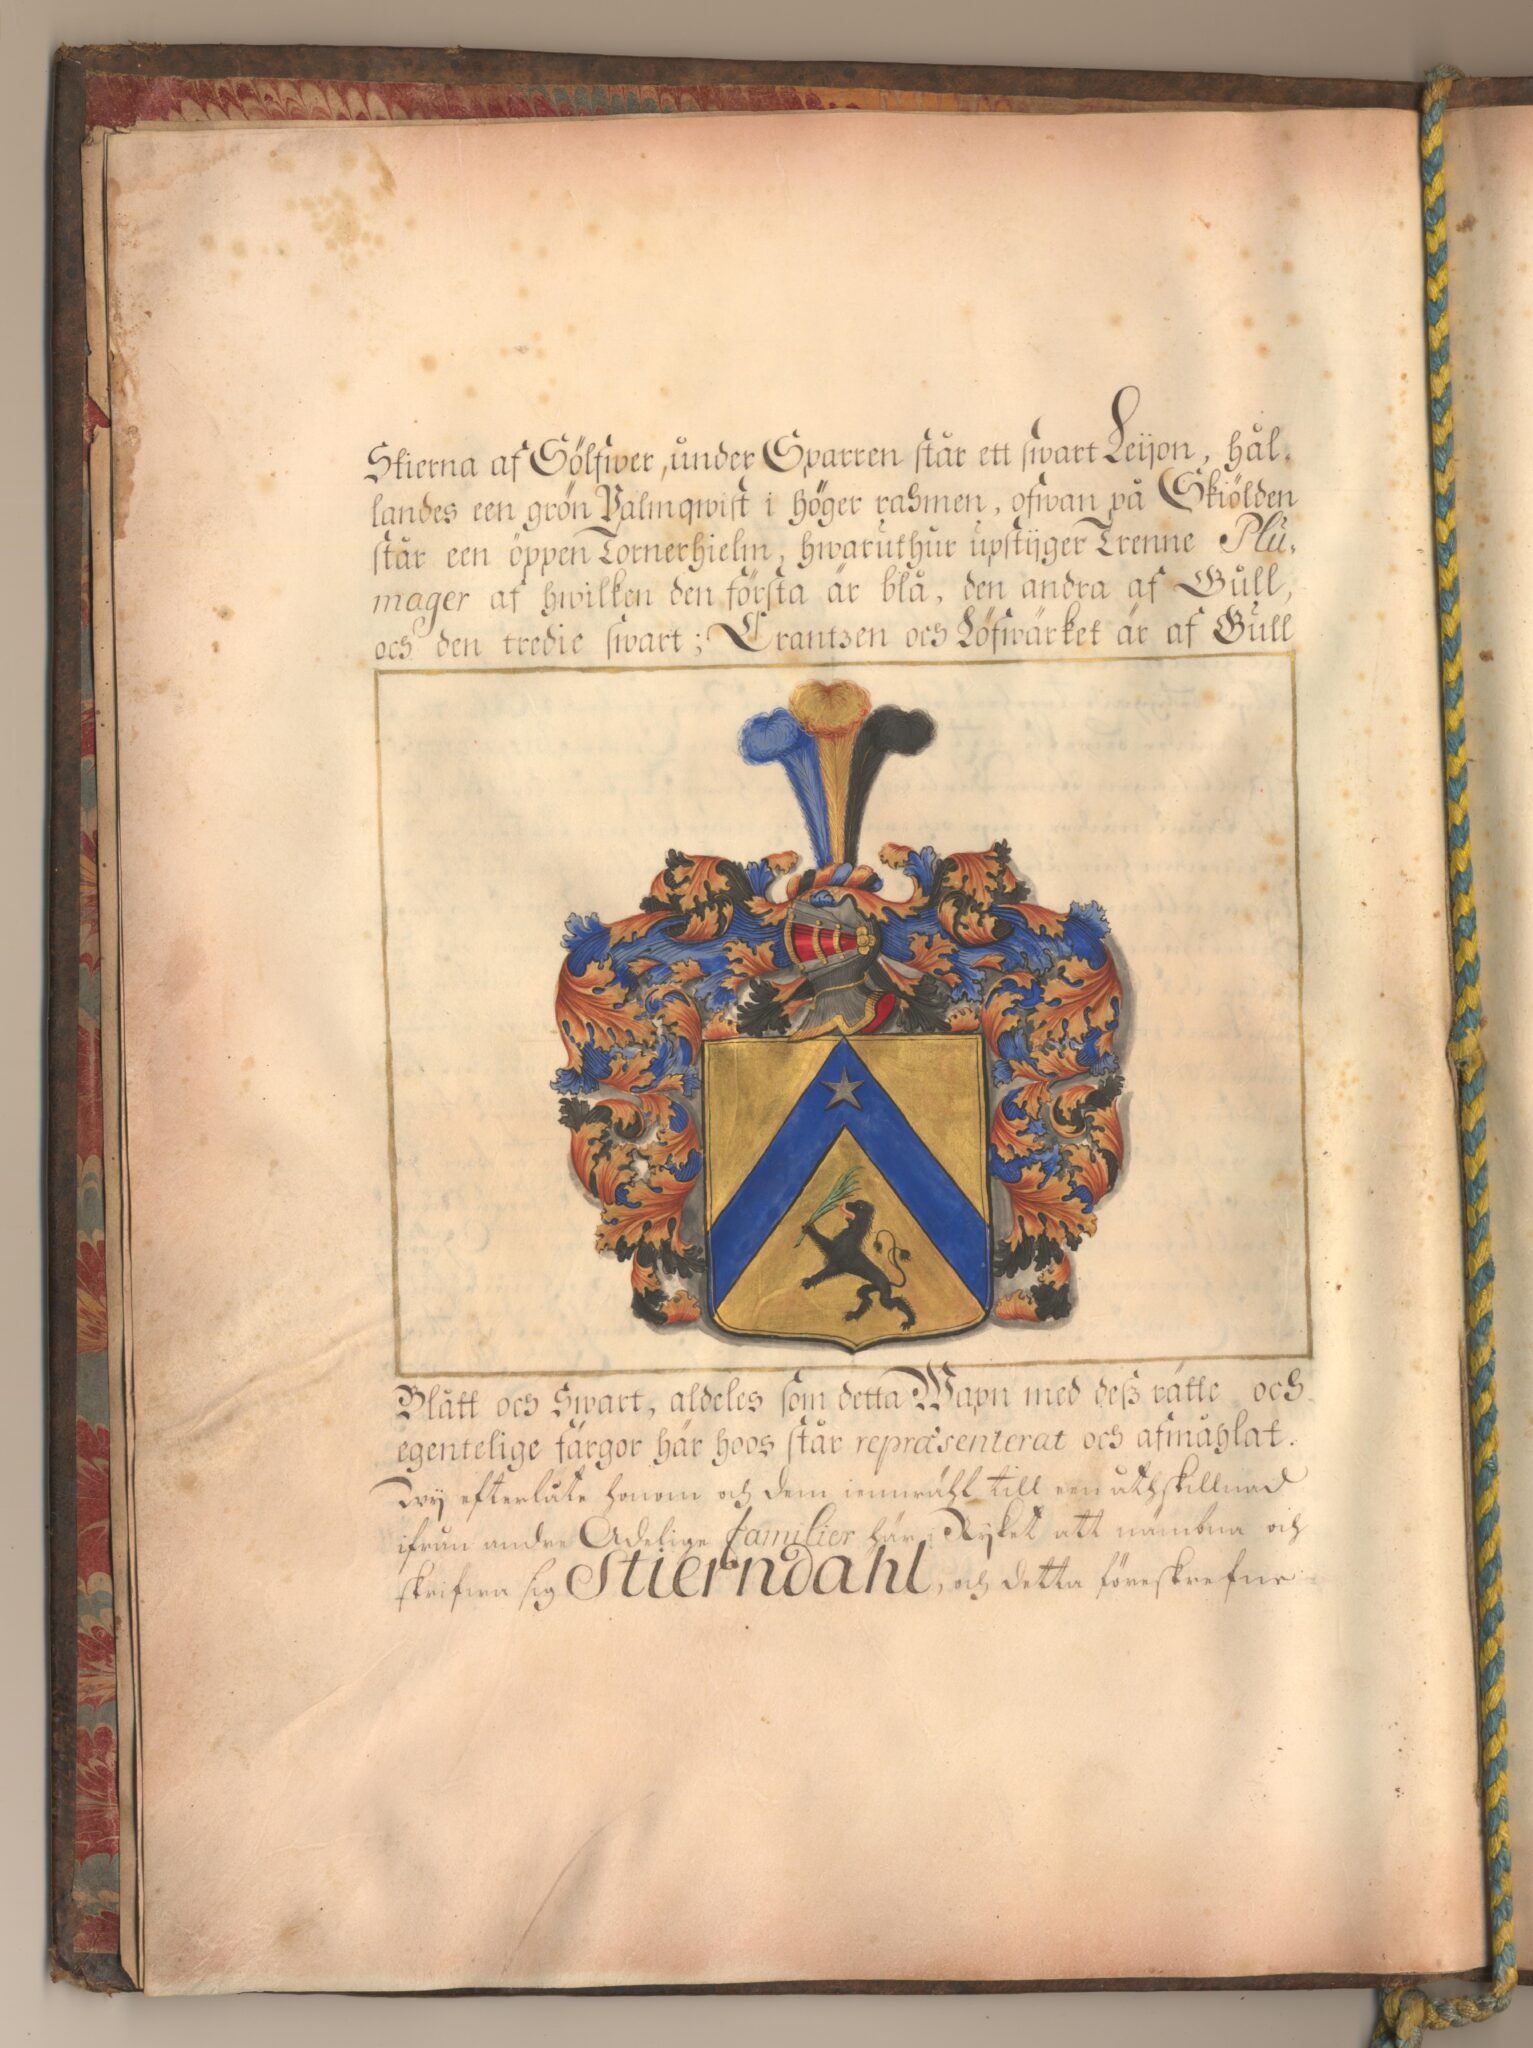 Stierna af Sölfwer, under Sparren står ett swart Leijon, hål-
landes een grön Palmqwist i höger rahmen, ofwan på Skiölden
står een öppen Tornerhielm, hwaruthur upstijger Trenne Plu-
mager af hwilken den första är blå, den andra af Gull,
och den tredie swart; Crantzen och Löfwärket är af Gull
Blått och Swart, aldeles som detta Wapn med desz rätte och
egentelige färgor här hoos står repræsenterat och afmåhlat.
Wij efterlåte honom och dem iemwähl till een uthskillnad
ifrån andre Adelige familier här i Rijket att nämbna och
skrifwa sig Stierndahl, och detta föreskrefne